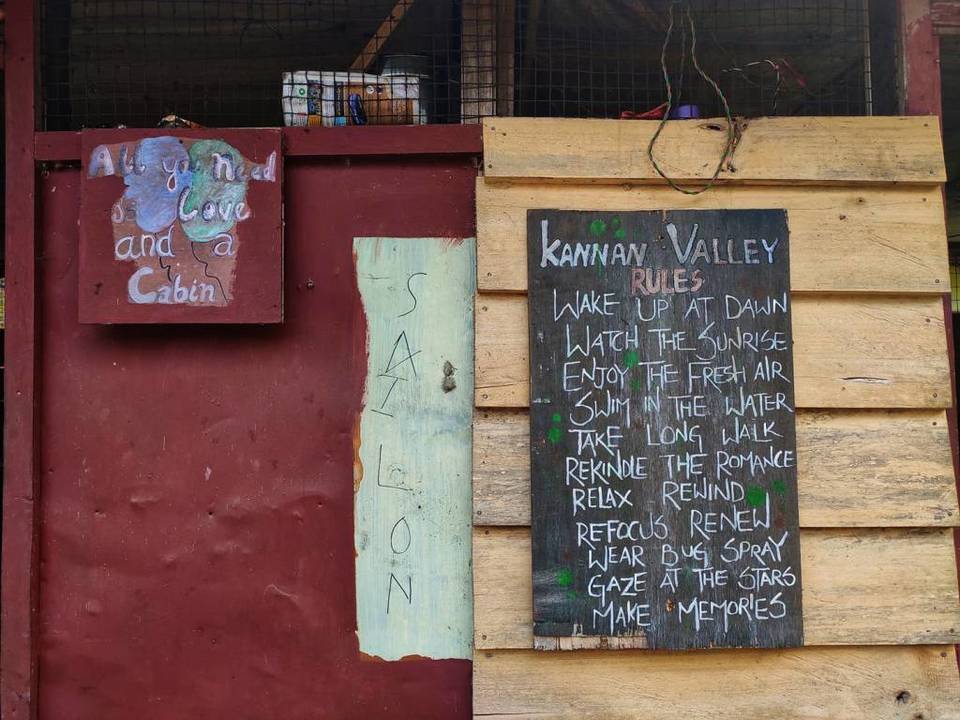 All you need
is Love
and a
Cabin
SAILON
KANNAN VALLEY
RULES
WAKE UP AT DAWN
WATCH THE SUNRISE
ENJOY THE FRESH AIR
SWIM IN THE WATER
TAKE LONG WALK
REKINDLE THE ROMANCE
RELAX REWIND
REFOCUS RENEW
WEAR BUG SPRAY
GAZE AT THE STARS
MAKE MEMORIES